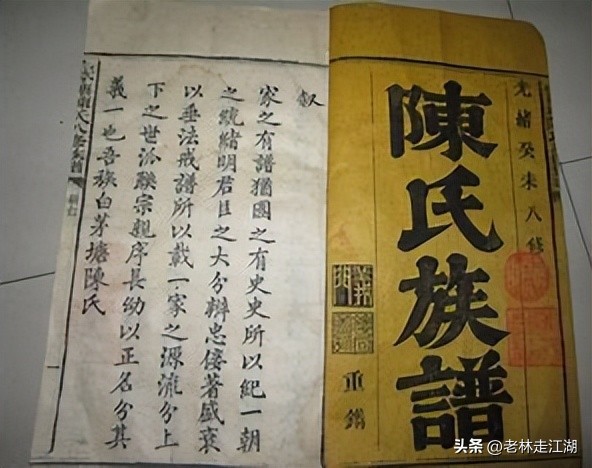 光緒癸未八修
陳氏族譜
重鐫
叙
家之有譜猶國之有史史所以紀一朝
之統緒明君臣之大分辯忠佞著盛衰
以垂法戒譜所以載一家之源流分上
下之世派聯宗親序長幼以正名分其
義一也吾族白茅塘陳氏
头条 @老林走江湖